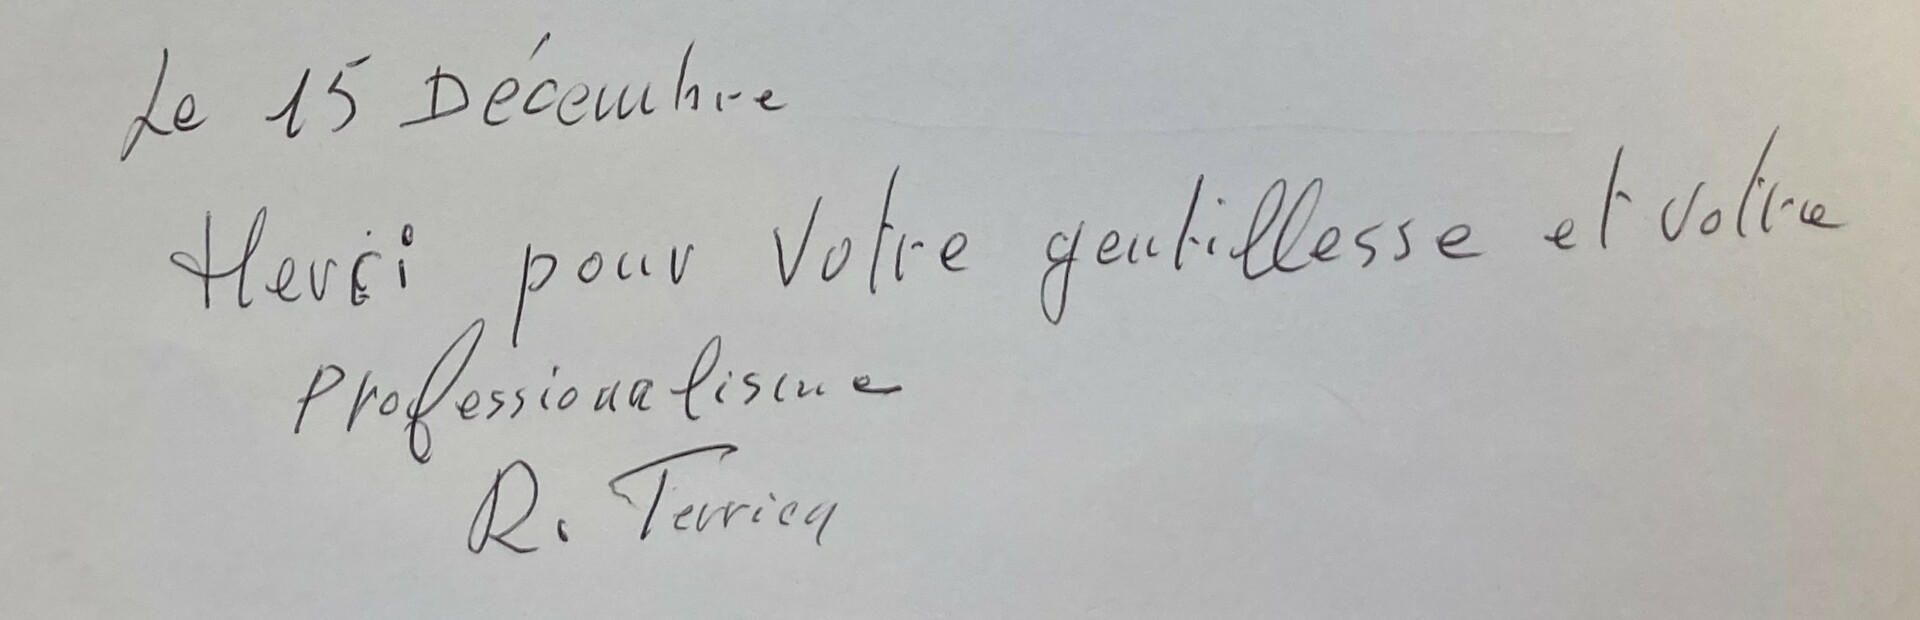 Le 15 Décembre
Merci pour Votre gentillesse et votre
Professionalisme
R. Terricq